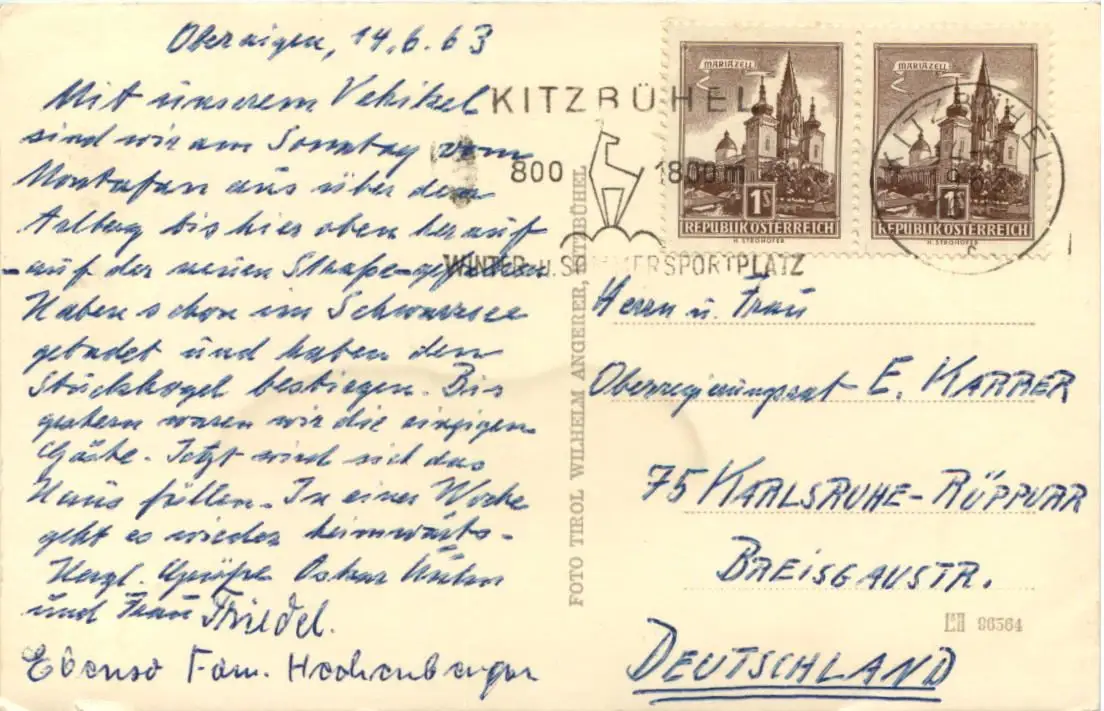 Oberaigen, 14.6.63
Mit unserem Vehikel
sind wir am Sonntag vom
Montafon aus über den
Arlberg bis hier oben herauf
- auf der neuen Straße - gefahren
Haben schon im Schwarzsee
gebadet und haben den
Stuckkogel bestiegen. Bis
gestern waren wir die einzigen
Gäste. Jetzt wird sich das
Haus füllen. In einer Woche
geht es wieder heimwärts.
Herzl. Grüße Oskar
und Frau Friedel.
Ebenso Fam. Hechenberger
KITZBÜHEL
800 1800 m
WINTER- u. SOMMERSPORTPLATZ
MARIAZELL
1S
REPUBLIK ÖSTERREICH
H. STROHOFER
MARIAZELL
1S
REPUBLIK ÖSTERREICH
H. STROHOFER
KITZBÜHEL
c
FOTO TIROL WILHELM ANGERER, KITZBÜHEL
Herrn u. Frau
Oberregierungsrat E. KARRER
75 KARLSRUHE-RÜPPURR
BREISGAUSTR.
DEUTSCHLAND
96564